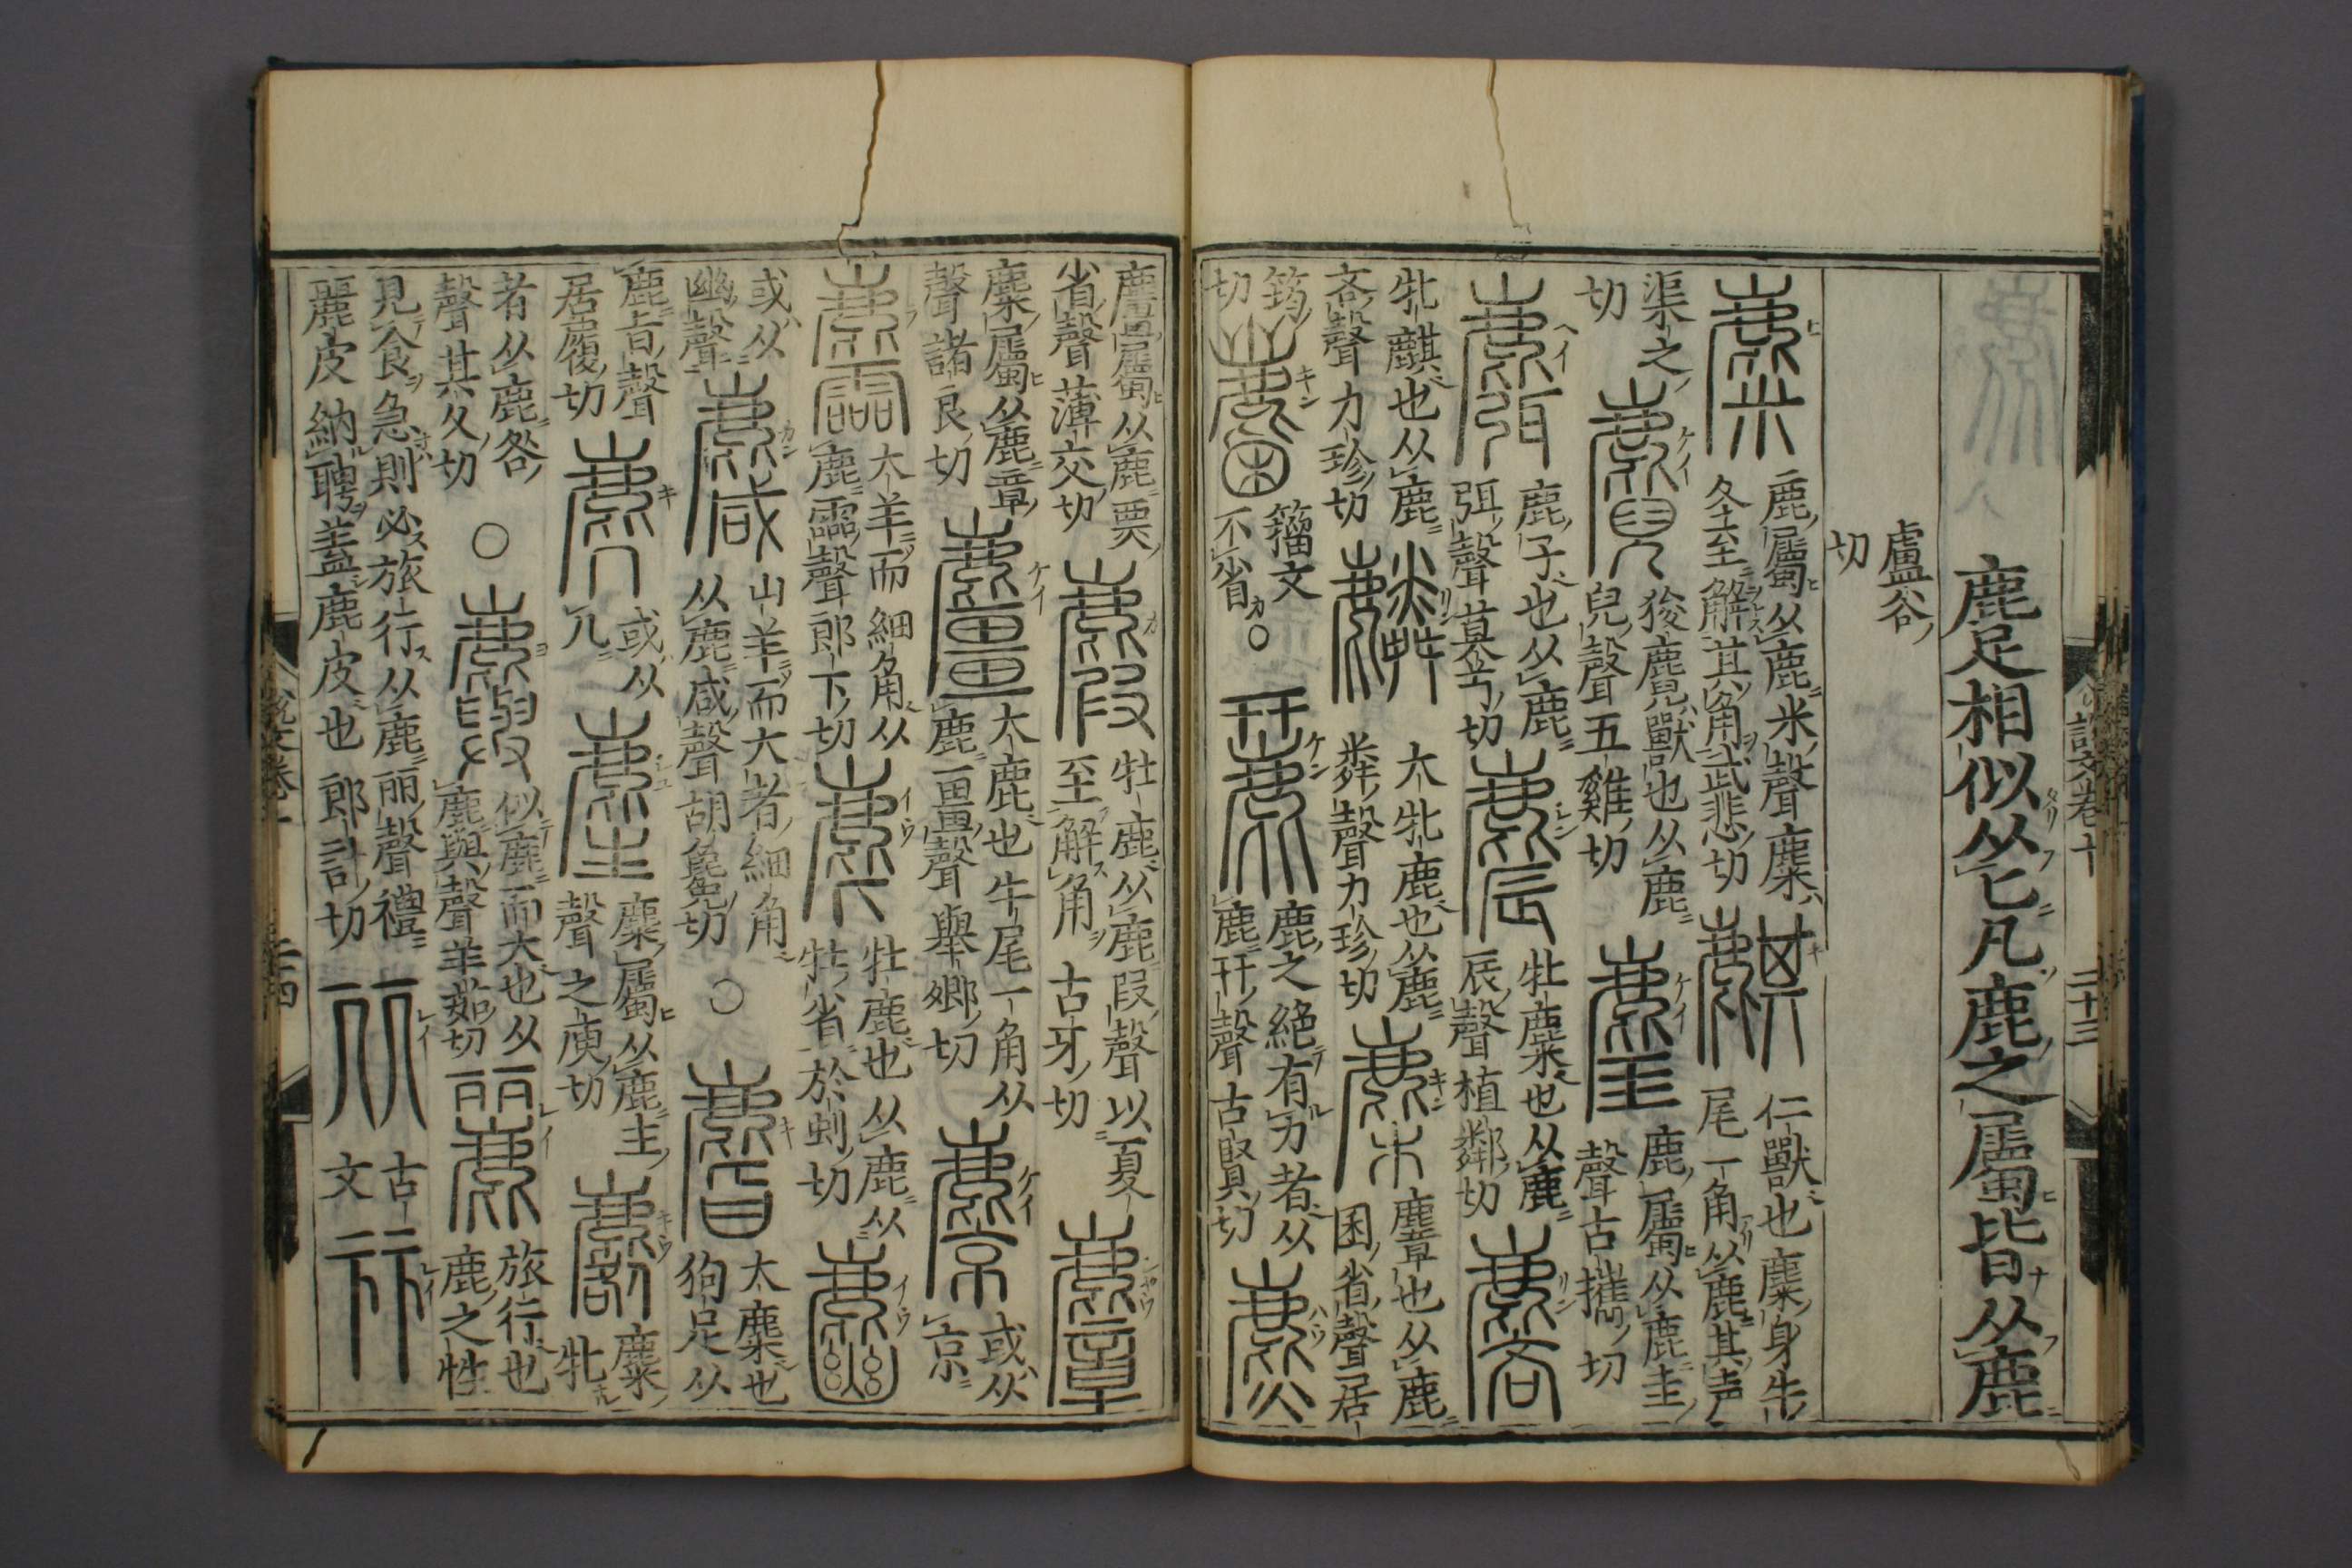 説文卷十 二十三
鹿足相似从匕凡鹿之屬皆从鹿
盧谷
切
麋
鹿屬从鹿米聲麋
冬至解其角武悲切
麒
仁獸也麋身牛
尾一角从鹿其声
渠之
切
麑
狻麑獸也从鹿
兒聲五雞切
鹿屬从鹿圭
聲古攜切
鹿子也从鹿
弭聲莫兮切
麎
牝麋也从鹿
辰聲植鄰切
麐
牝麒也从鹿
吝聲力珍切
麟
大牝鹿也从鹿
粦聲力珍切
麇
麞也从鹿
囷省聲居
筠
切
籀文
不省
○
麉
鹿之絶有力者从
鹿幵聲古賢切
麃
麠屬从鹿票
省聲薄交切
麚
牡鹿从鹿叚聲以夏
至解角古牙切
麞
麋屬从鹿章
聲諸良切
麠
大鹿也牛尾一角从
鹿畺聲舉卿切
麖
或从
京
麢
大羊而細角从
鹿霝聲郎丁切
牡鹿也从鹿从
牡省於虯切
或从
幽聲
麙
山羊而大者細角
从鹿咸聲胡毚切
○
大麋也
狗足从
鹿旨聲
居履切
麂
或从
几
麈
麋屬从鹿主
聲之庾切
麔
麋
牝
者从鹿咎
聲其久切
○
似鹿而大也从
鹿與聲羊茹切
麗
旅行也
鹿之性
見食急則必旅行从鹿丽聲禮
麗皮納聘蓋鹿皮也郎計切
古
文